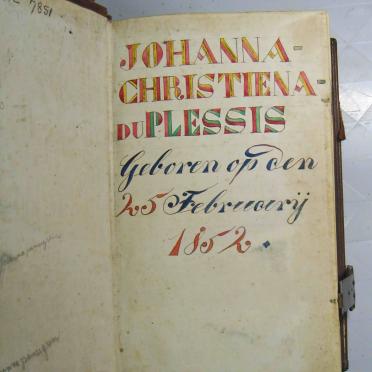 7851
JOHANNA-
CHRISTIENA-
DU PLESSIS
Geboren op den
25 Februarij
1852.